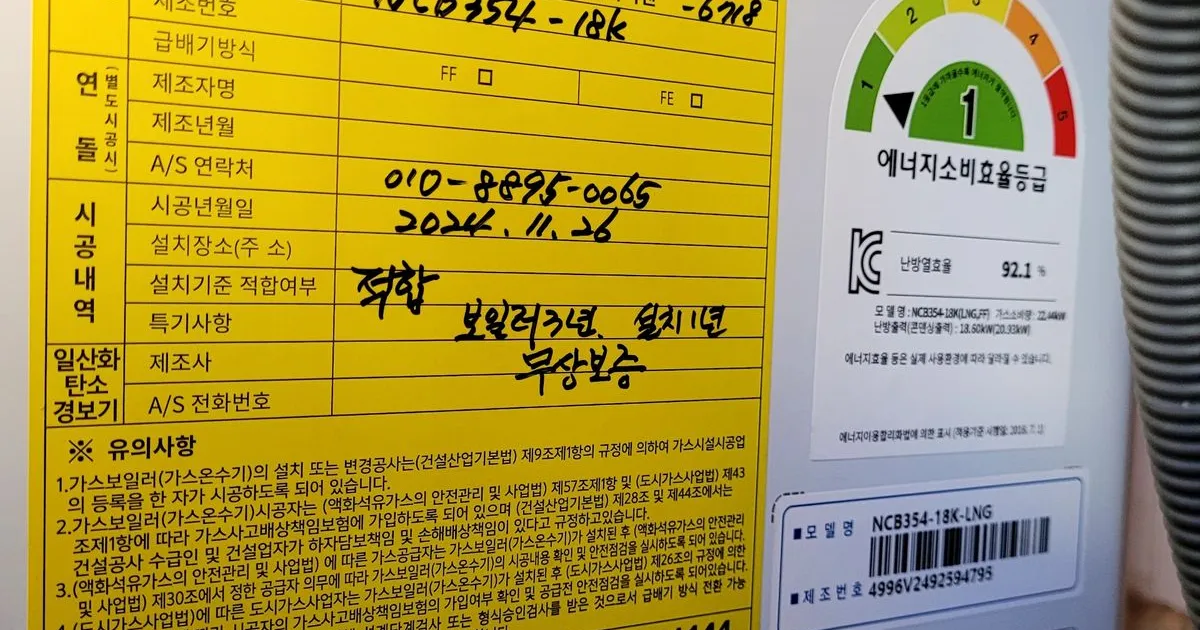 제조번호
NCB354-18K
-6718
급배기방식
FF □
FE □
연돌
(별도시공시)
제조자명
제조년월
A/S 연락처
010-8895-0065
시공내역
시공년월일
2024.11.26
설치장소(주 소)
설치기준 적합여부
적합
특기사항
보일러3년. 설치1년
무상보증
일산화
탄소
경보기
제조사
A/S 전화번호
※ 유의사항
1.가스보일러(가스온수기)의 설치 또는 변경공사는(건설산업기본법) 제9조제1항의 규정에 의하여 가스시설시공업
의 등록을 한 자가 시공하도록 되어 있습니다.
2.가스보일러(가스온수기)시공자는 (액화석유가스의 안전관리 및 사업법) 제57조제1항 및 (도시가스사업법) 제43
조제1항에 따라 가스사고배상책임보험에 가입하도록 되어 있으며 (건설산업기본법) 제28조 및 제44조에서는
건설공사 수급인 및 건설업자가 하자담보책임 및 손해배상책임이 있다고 규정하고있습니다.
3.(액화석유가스의 안전관리 및 사업법) 에 따른 가스공급자는 가스보일러(가스온수기)가 설치된 후 (액화석유가스의 안전관리
및 사업법) 제30조에서 정한 공급자 의무에 따라 가스보일러(가스온수기)의 시공내용 확인 및 안전점검을 실시하도록 되어 있으며,
4.(도시가스사업법)에 따른 도시가스사업자는 가스보일러(가스온수기)가 설치된 후 (도시가스사업법) 제26조의 규정에 의한
시공자의 가스사고배상책임보험의 가입여부 확인 및 공급전 안전점검을 실시하도록 되어 있습니다.
또는 형식승인검사를 받은 것으로서 급배기 방식 전환 가능
1 2 3 4 5
1
에너지소비효율등급
난방열효율 92.1 %
모 델 명 : NCB354-18K(LNG,FF) 가스소비량 : 22.44kW
난방출력(콘덴싱출력) : 18.60kW(20.93kW)
에너지효율 등은 실제 사용환경에 따라 달라질 수 있습니다.
에너지이용합리화법에 의한 표시
■ 모 델 명 NCB354-18K-LNG
■ 제 조 번 호 4996V2492594795